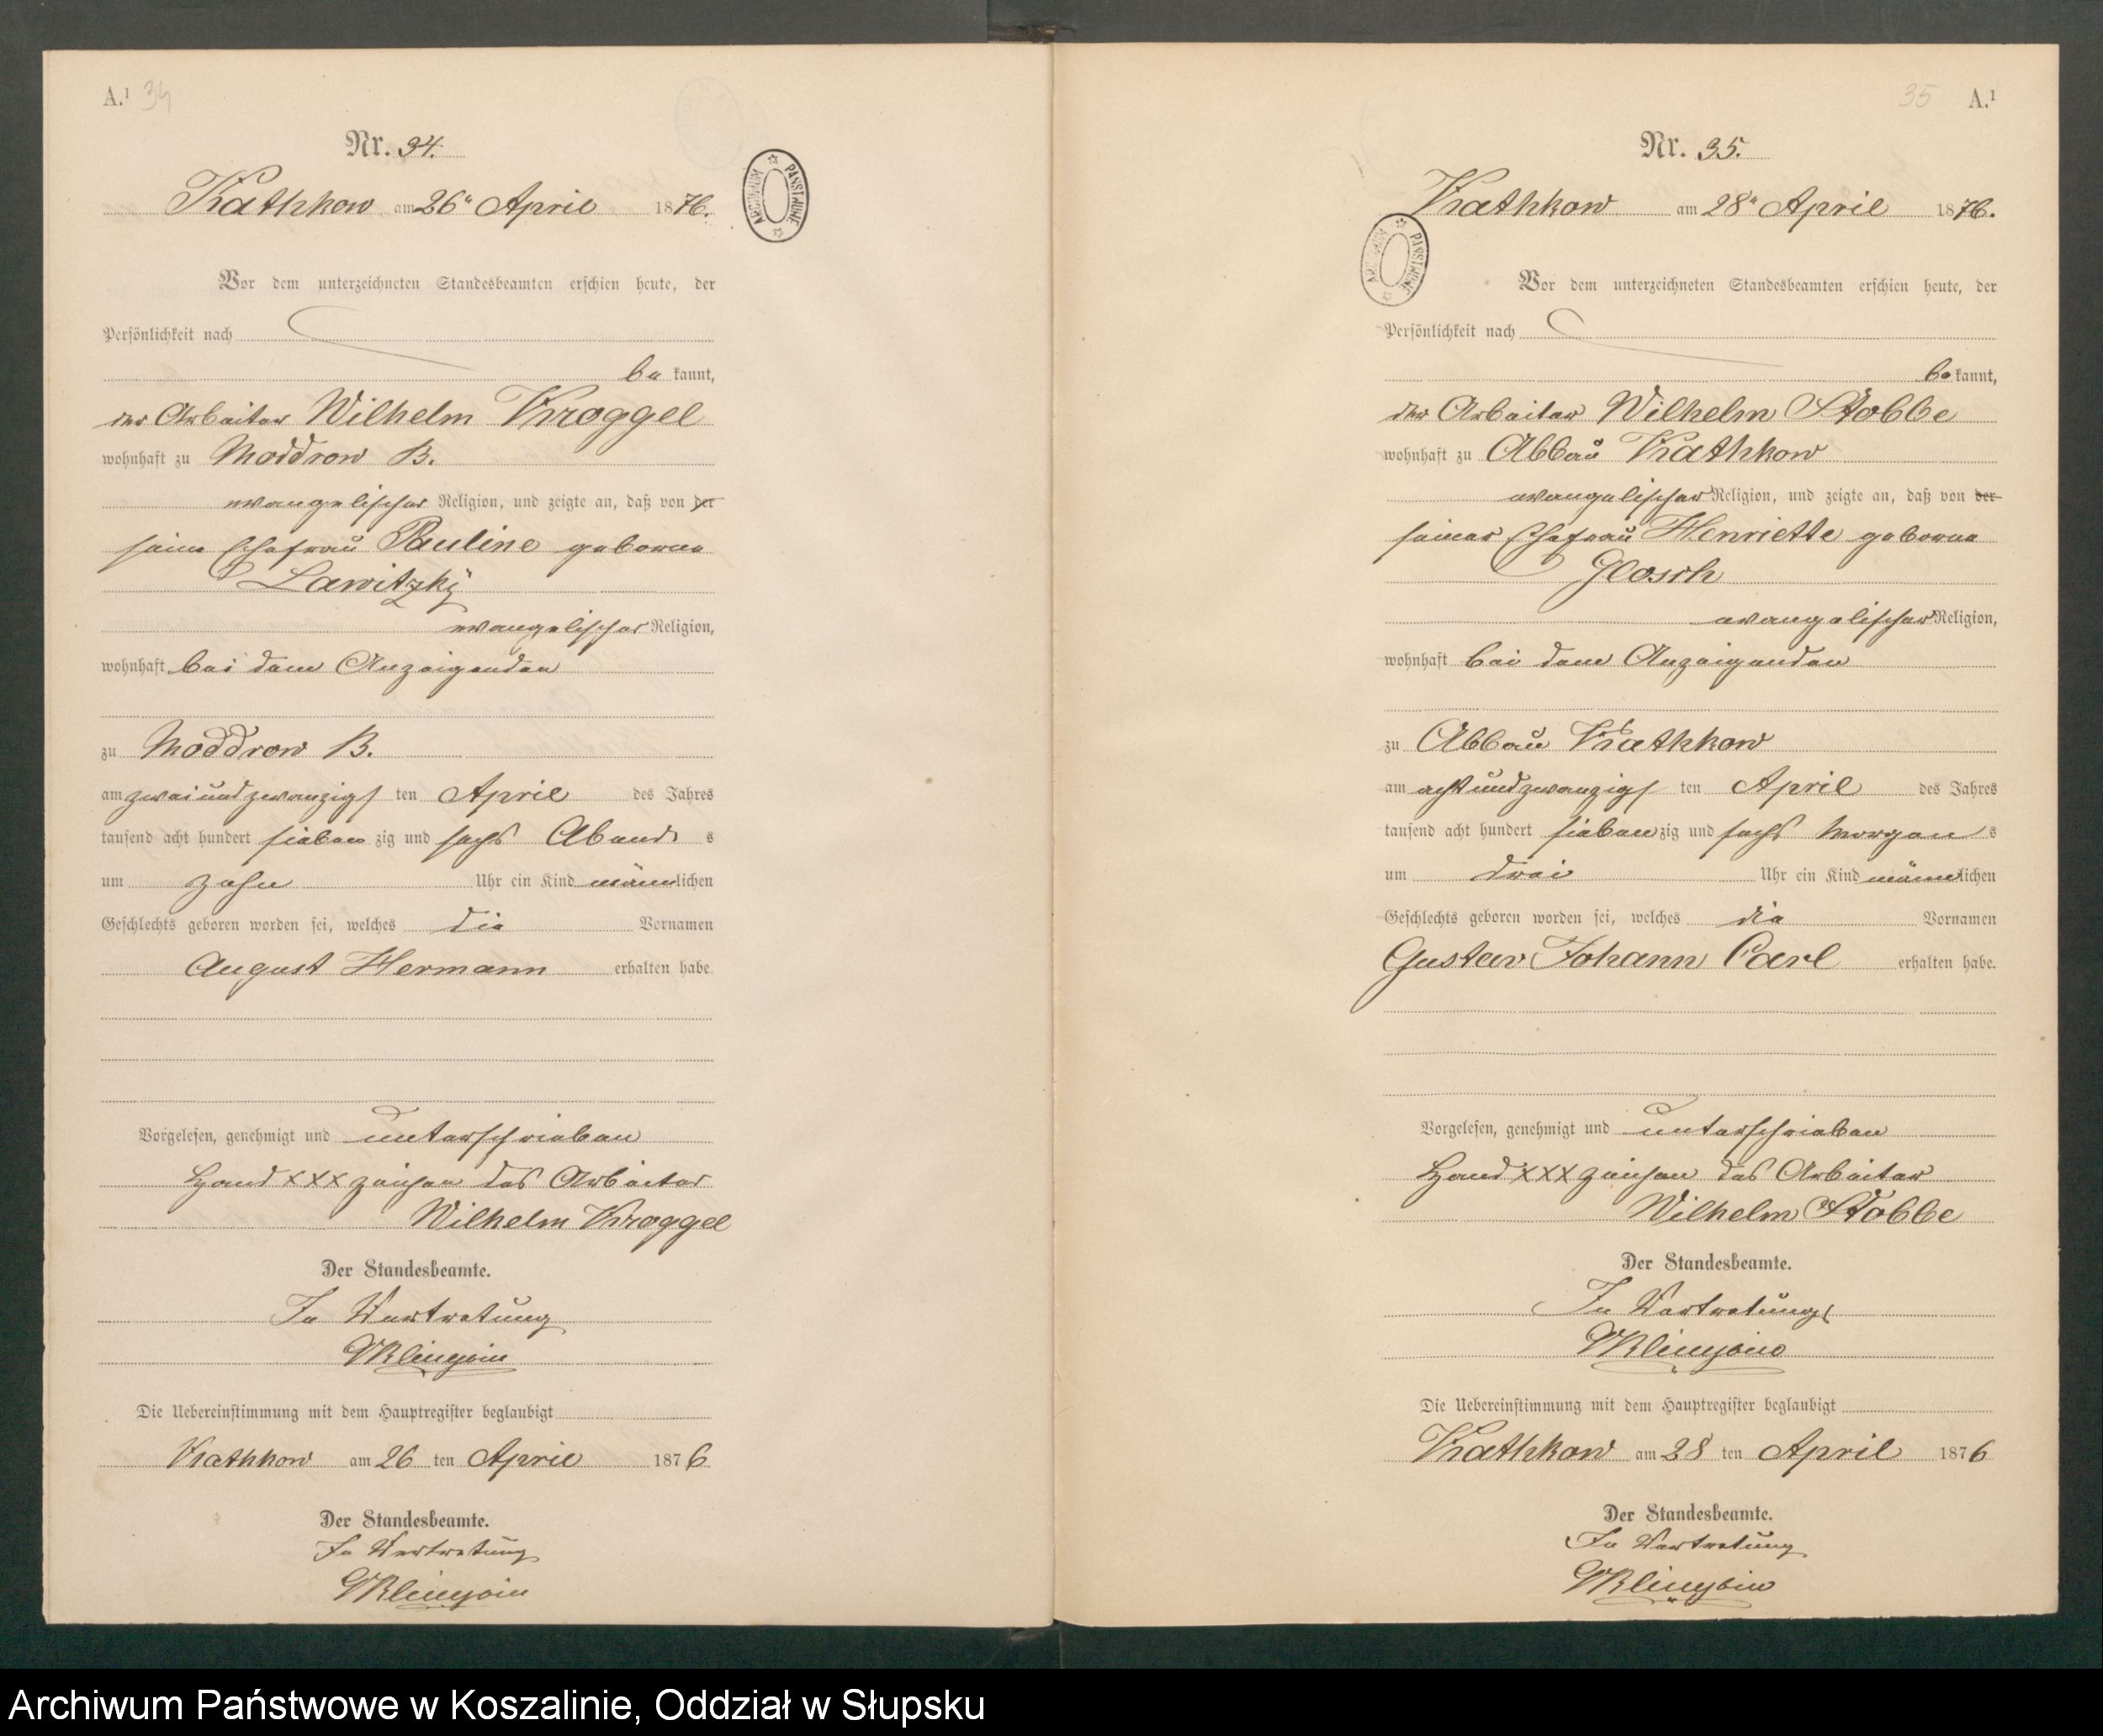 A.¹ 34
Nr. 34.
Krathkow am 26ᵗ April 1876.
ARCHIWUM PAŃSTWOWE
Vor dem unterzeichneten Standesbeamten erschien heute, der
Persönlichkeit nach
be kannt,
der Arbeiter Wilhelm Kroggel
wohnhaft zu Moddrow B.
evangelischer Religion, und zeigte an, daß von der
seine Ehefrau Pauline geborne
Lawitzky
evangelischer Religion,
wohnhaft bei dem Anzeigenden
zu Moddrow B.
am zweiundzwanzigs ten April des Jahres
tausend acht hundert sieben zig und sechs Abend s
um zehn Uhr ein Kind männlichen
Geschlechts geboren worden sei, welches die Vornamen
August Hermann erhalten habe.
Vorgelesen, genehmigt und unterschrieben
Hand xxx zeichen des Arbeiter
Wilhelm Kroggel
Der Standesbeamte.
In Vertretung
Die Uebereinstimmung mit dem Hauptregister beglaubigt
Krathkow am 26 ten April 1876
Der Standesbeamte.
In Vertretung
35 A.¹
Nr. 35.
Krathkow am 28ᵗ April 1876.
ARCHIWUM PAŃSTWOWE
Vor dem unterzeichneten Standesbeamten erschien heute, der
Persönlichkeit nach
be kannt,
der Arbeiter Wilhelm Stobbe
wohnhaft zu Abbau Krathkow
evangelischer Religion, und zeigte an, daß von der
seiner Ehefrau Henriette geborne
Glosch
evangelischer Religion,
wohnhaft bei dem Anzeigenden
zu Abbau Krathkow
am achtundzwanzigs ten April des Jahres
tausend acht hundert sieben zig und sechs Morgen s
um drei Uhr ein Kind männlichen
Geschlechts geboren worden sei, welches die Vornamen
Gustav Johann Carl erhalten habe.
Vorgelesen, genehmigt und unterschrieben
Hand xxx zeichen des Arbeiter
Wilhelm Stobbe
Der Standesbeamte.
In Vertretung
Die Uebereinstimmung mit dem Hauptregister beglaubigt
Krathkow am 28 ten April 1876
Der Standesbeamte.
In Vertretung
Archiwum Państwowe w Koszalinie, Oddział w Słupsku